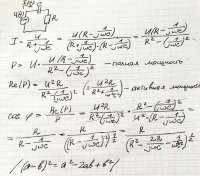 R
I = U / (R + 1/jωc) = U(R - 1/jωc) / (R + 1/jωc)(R - 1/jωc) = U(R - 1/jωc) / (R² - (1/jωc)²)
P = U · U(R - 1/jωc) / (R² - (1/jωc)²) — полная мощность
Re(P) = U²R / (R² - (1/jωc)²) = U²R / (R² + 1/ω²c²) — активная мощность
cos φ = Re(P) / P = U²R / (R² - (1/jωc)²) · (R² - (1/jωc)²) / U²(R - 1/jωc) =
= R / (R - 1/jωc) = R / ((R - 1/jωc)²)^½ = R / (R² - 2R/jωc
(a-b)² = a² - 2ab + b²